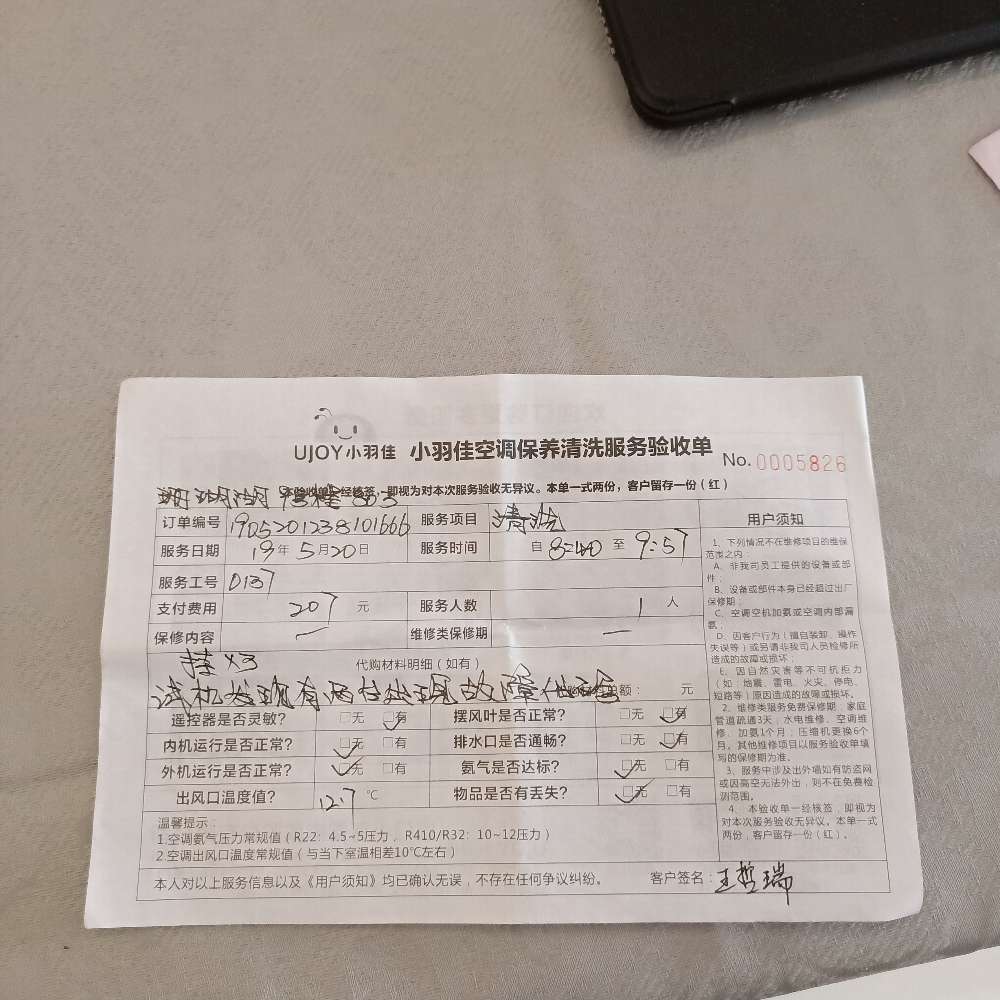 UJOY小羽佳 小羽佳空调保养清洗服务验收单 No.0005826
本验收单一经核签，即视为对本次服务验收无异议。本单一式两份，客户留存一份（红）
803
订单编号 1905201238101666 服务项目 清洗
服务日期 19年5月20日 服务时间 自8:40至9:57
服务工号 0137
支付费用 207元 服务人数 1人
保修内容 — 维修类保修期 —
挂x3 代购材料明细（如有）
试机发现有两台出现故障代码 额： 元
遥控器是否灵敏？ □无 □有 摆风叶是否正常？ □无 □有
内机运行是否正常？ □无 □有 排水口是否通畅？ □无 □有
外机运行是否正常？ □无 □有 氨气是否达标？ □无 □有
出风口温度值？ 12.7 ℃ 物品是否有丢失？ □无 □有
温馨提示：
1.空调氨气压力常规值（R22：4.5~5压力，R410/R32：10~12压力）
2.空调出风口温度常规值（与当下室温相差10℃左右）
本人对以上服务信息以及《用户须知》均已确认无误，不存在任何争议纠纷。 客户签名：王哲瑞
用户须知
1、下列情况不在维修项目的维保
范围之内：
A、非我司员工提供的设备或部
件；
B、设备或部件本身已经超过出厂
保修期；
C、空调空机加氨或空调内部漏
氨；
D、因客户行为（擅自装卸、操作
失误等）或另请非我司人员检修所
造成的故障或损坏；
E、因自然灾害等不可抗拒力
（如：地震、雷电、火灾、停电、
短路等）原因造成的故障或损坏。
2、维修类服务免费保修期：家庭
管道疏通3天；水电维修、空调维
修、加氨1个月；压缩机更换6个
月。其他维修项目以服务验收单填
写的保修期为准。
3、服务中涉及出外墙如有防盗网
或因高空无法外出，则不在免费检
测范围。
4、本验收单一经核签，即视为
对本次服务验收无异议。本单一式
两份，客户留存一份（红）。